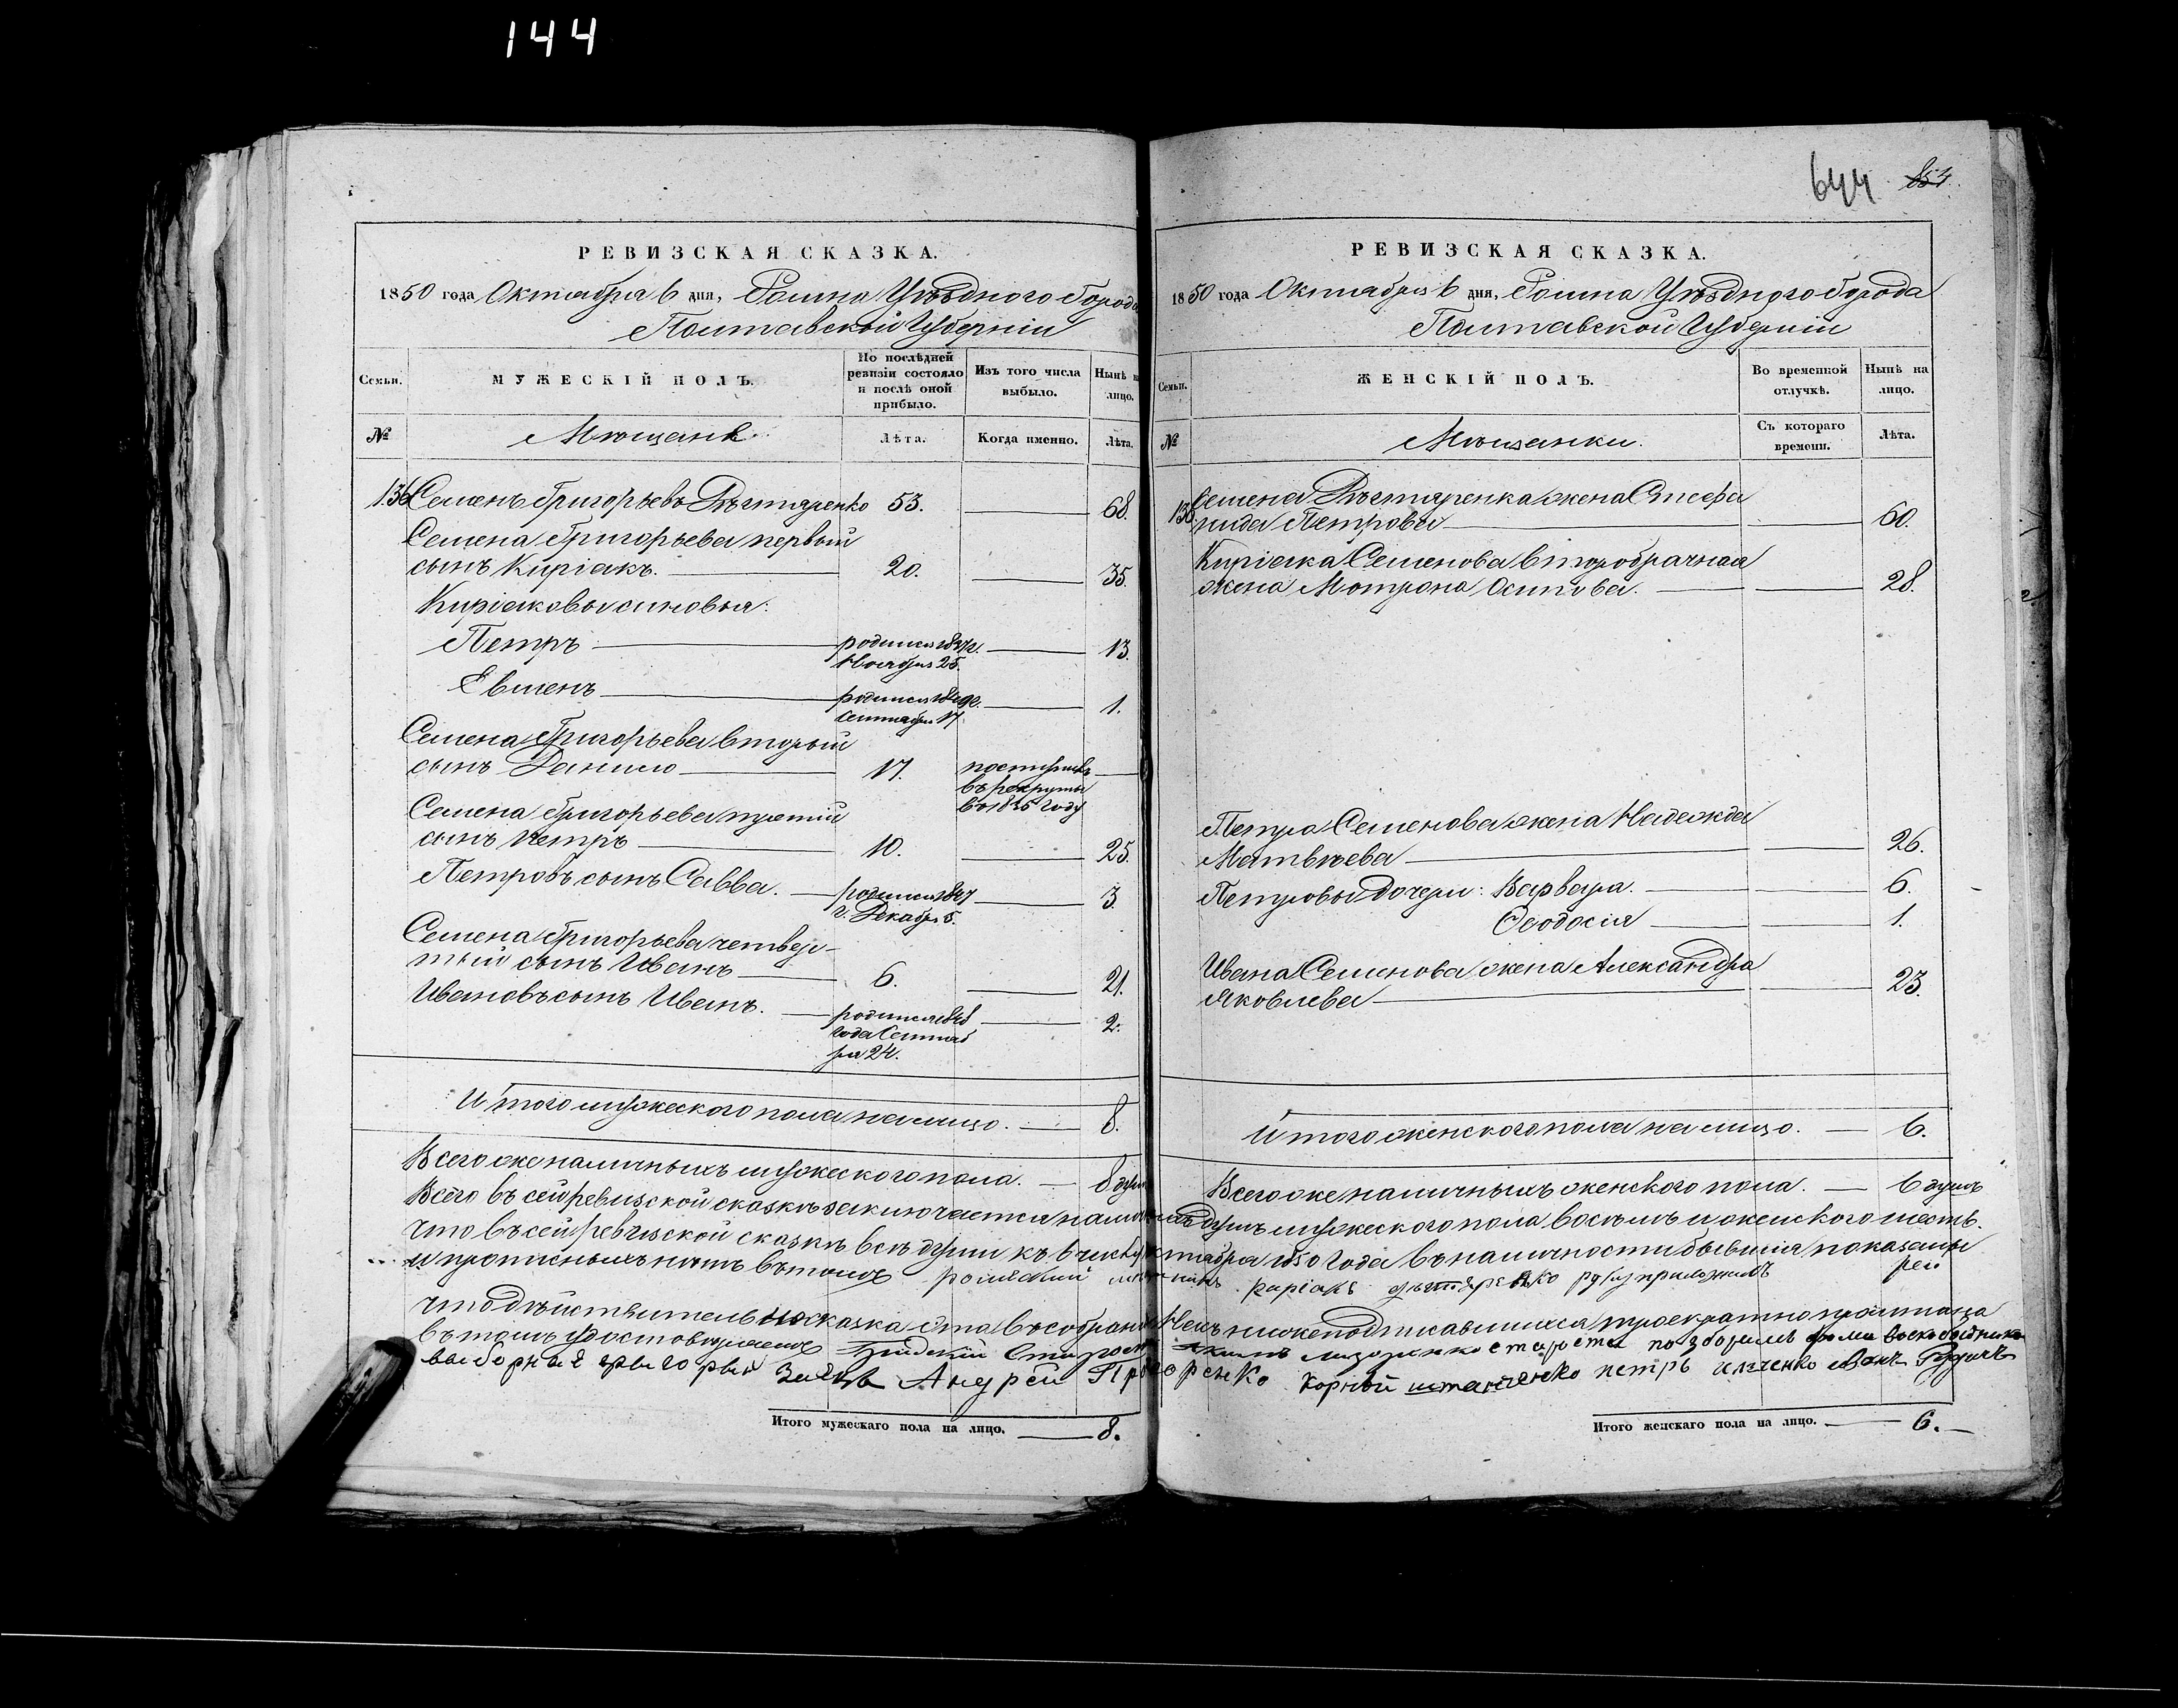 144
РЕВИЗСКАЯ СКАЗКА.
1850 года Октября 6 дня, Ромна Уѣзднаго Города
Полтавской Губерніи
Семьи.
МУЖЕСКІЙ ПОЛЪ.
По послѣдней ревизіи состояло и послѣ оной прибыло.
Изъ того числа выбыло.
Нынѣ на лицо.
№
Мѣщане.
Лѣта.
Когда именно.
Лѣта.
136 Семенъ Григорьевъ Дѣгтяренко 53. 68.
Семена Григорьева первый
сынъ Киріакъ. 20. 35.
Киріаковы сыновья:
Петръ родился 1837 г. 13.
Ноября 25.
Евменъ родился 1849 г. 1.
Сентября 17
Семена Григорьева вторый
сынъ Данило 17. поступилъ
въ рекруты
въ 1845 году
Семена Григорьева третій
сынъ Петръ 10. 25.
Петровъ сынъ Савва. родился 1847 3.
г. Декабря 5.
Семена Григорьева четвер-
тый сынъ Иванъ 6. 21.
Ивановъ сынъ Иванъ. родился 1848 2.
года Сентяб
ря 24.
Итого мужескаго пола на лицо. 8.
Всего же наличныхъ мужескаго пола. 8 душъ
644 854.
РЕВИЗСКАЯ СКАЗКА.
1850 года Октября 6 дня, Ромна Уѣзднаго Города
Полтавской Губерніи
Семьи.
ЖЕНСКІЙ ПОЛЪ.
Во временной отлучкѣ.
Нынѣ на лицо.
№
Мѣщанки.
Съ котораго времени.
Лѣта.
136 Семена Дѣгтяренка жена Стефа
нида Петрова 60.
Киріака Семенова второбрачная
жена Мотрона Осипова. 28.
Петра Семенова жена Надежда
Матвѣева 26.
Петровы дочери: Варвара. 6.
Ѳеодосія 1.
Ивана Семенова жена Александра
Яковлева 23.
Итого женскаго пола на лицо. 6.
Всего же наличныхъ женскаго пола. 6 душъ
Всего въ сей ревизской сказкѣ заключается наличныхъ душъ мужескаго пола восемь и женскаго шесть.
Что въ сей ревизской сказкѣ всѣ души къ 6 числу Октября 1850 года въ наличности бывшія показаны
и прописныхъ нѣтъ въ томъ роменский мещанинъ Кариакъ дѣгтяренко руку приложилъ
Что дѣйствительно сказка эта въ собраніи всѣхъ нижеподписавшихся троекратно прочитана
въ томъ удостовѣряемъ Градскій Староста Якимъ староста Фома
выборный Заецъ Андрей Корней петръ Иванъ Рудичъ
Итого мужескаго пола на лицо. 8.
Итого женскаго пола на лицо. 6.